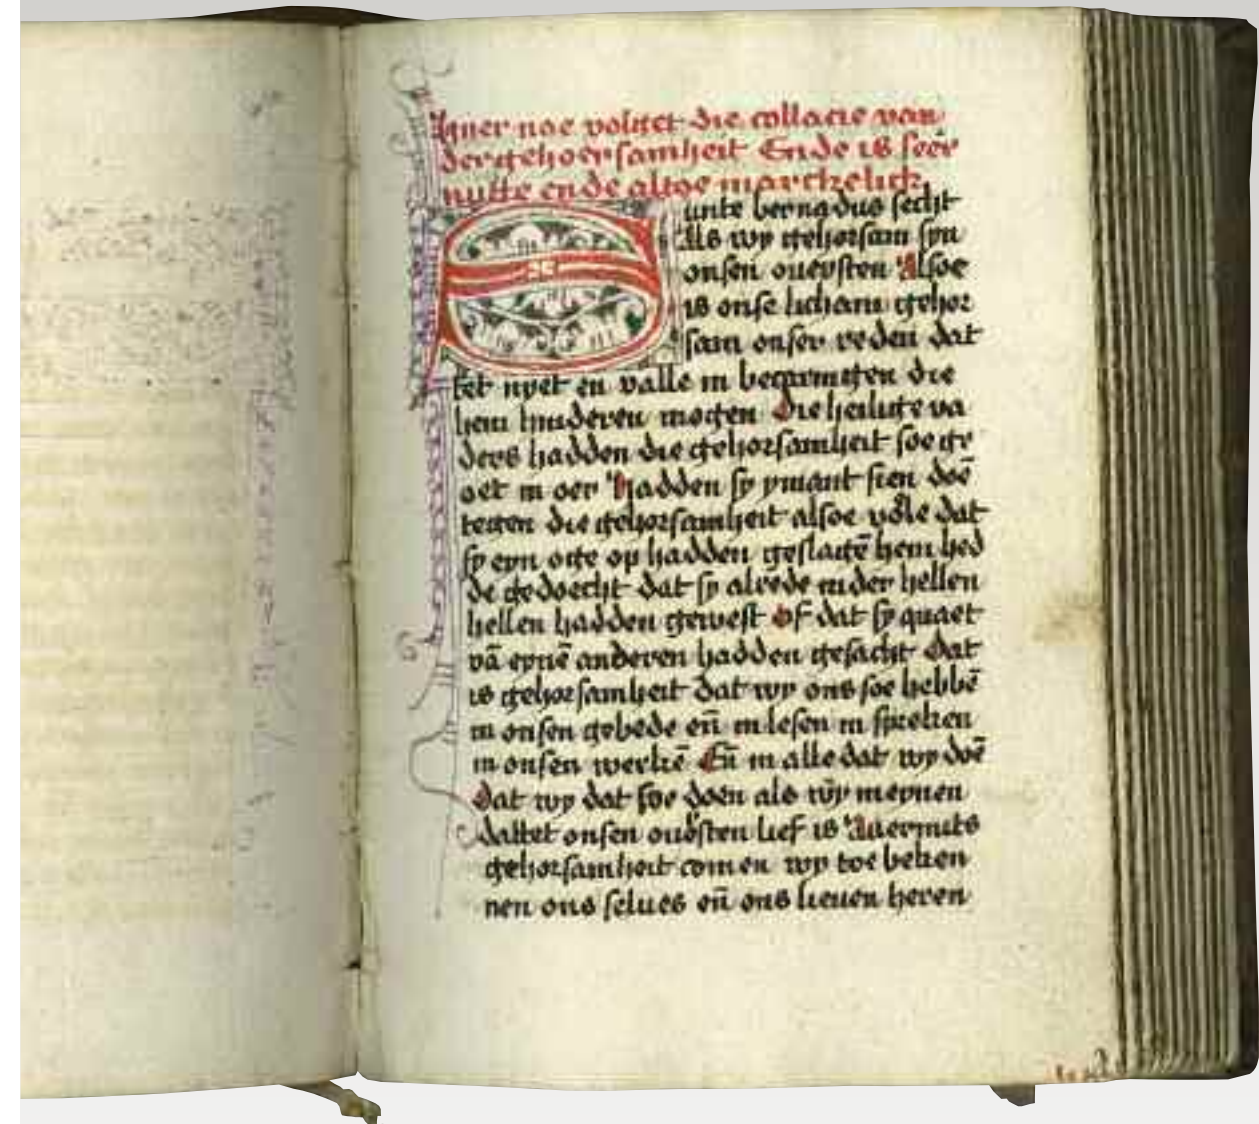 Hyer nae volget die collacie van
der gehoersamheit Ende is seer
nutte ende altoe merckelick
Sunte bernadus secht
Als wy gehorsam syn
onsen ouersten Alsoe
is onse licham gehor
sam onser reden dat
tet nyet en valle in becaringen die
hem hinderen mogen Die heilige va
ders hadden die gehorsamheit soe gr
oet in oer Hadden sy ymant sien doē
tegen die gehorsamheit alsoe vole dat
sy eyn oge op hadden geslagē hem hed
de gedoecht dat sy alrede in der hellen
hellen hadden gewest Of dat sy quaet
vā eynē anderen hadden gesacht Dat
is gehorsamheit dat wy ons soe hebbē
in onsen gebede eñ in lesen in spreken
in onsen werkē Eñ in alle dat wy doē
Dat wy dat soe doen als wy meynen
dattet onsen ouersten lief is Auermits
gehorsamheit comen wy toe beken
nen ons selues eñ ons lieuen heren